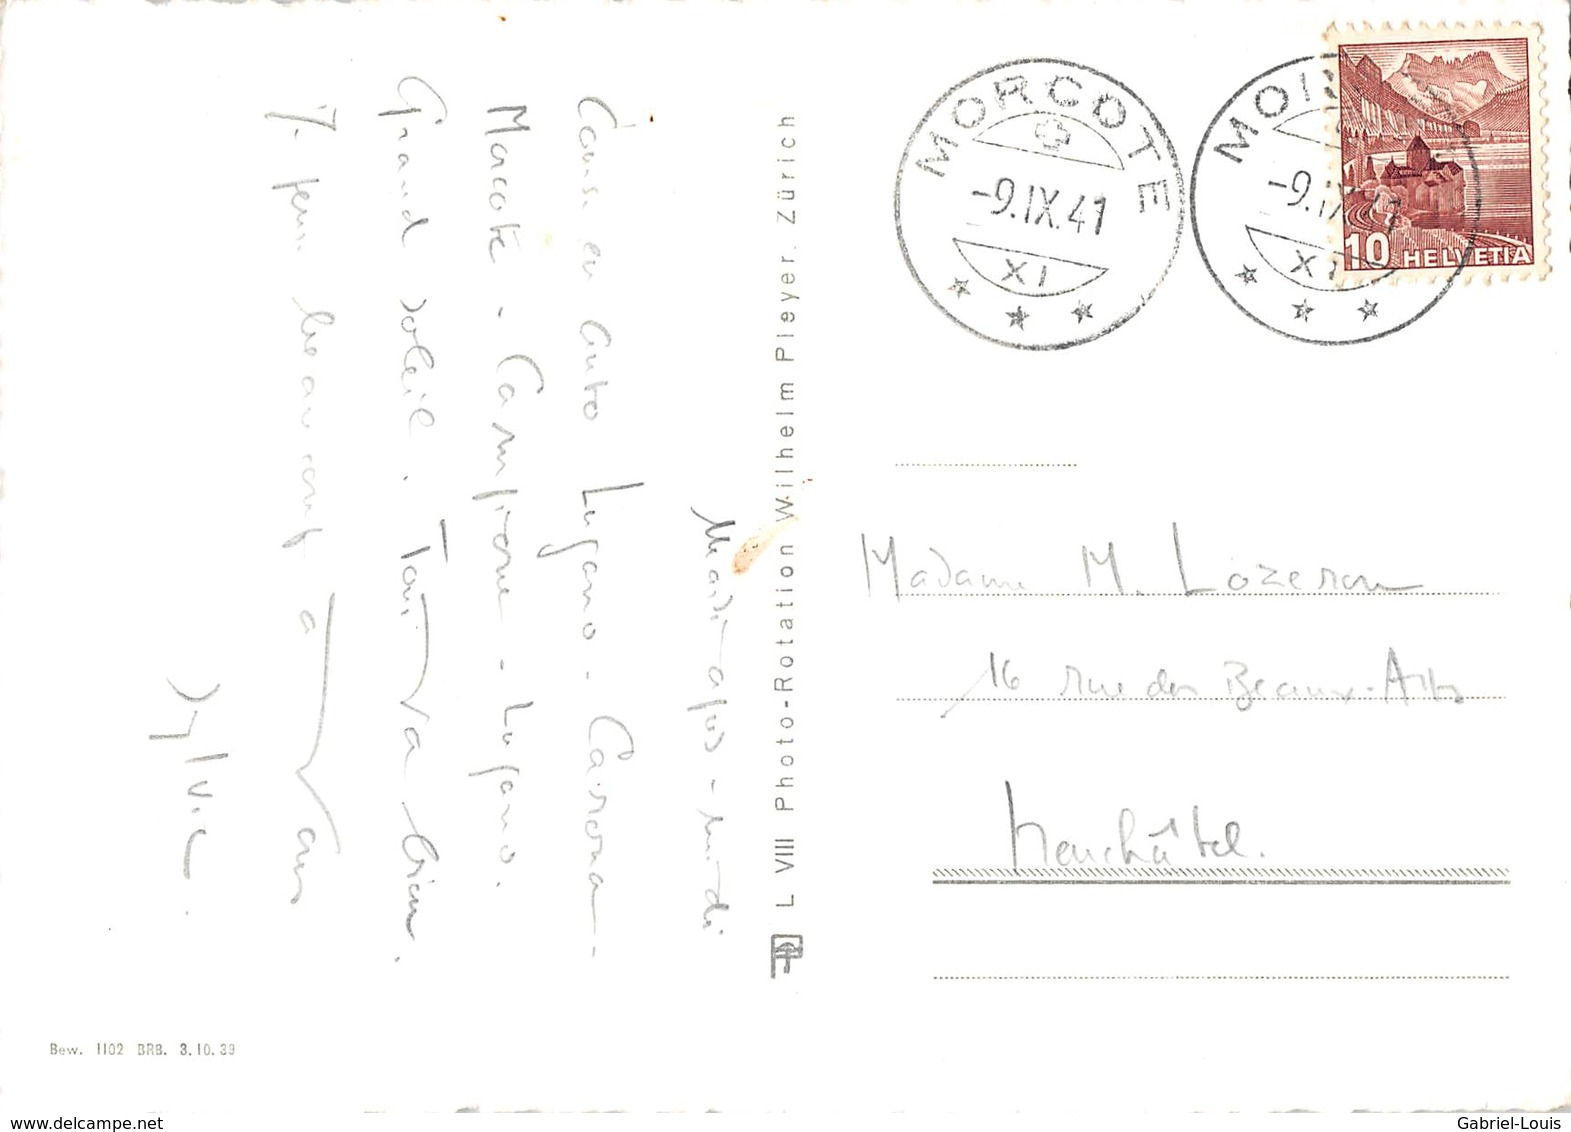 Mardi après-midi
Course en auto Lugano - Carona -
Morcote - Campione - Lugano.
Grand soleil. Tout va bien.
Je pense beaucoup à vous
Sylvie
L VIII Photo-Rotation Wilhelm Pleyer, Zürich
Bew. 1102 BRB. 3.10.39
MORCOTE
-9.IX.41
XI
-9.IX.41
XI
10 HELVETIA
Madame M. Lozeron
16 rue des Beaux-Arts
Neuchâtel.
delcampe.net
Gabriel-Louis